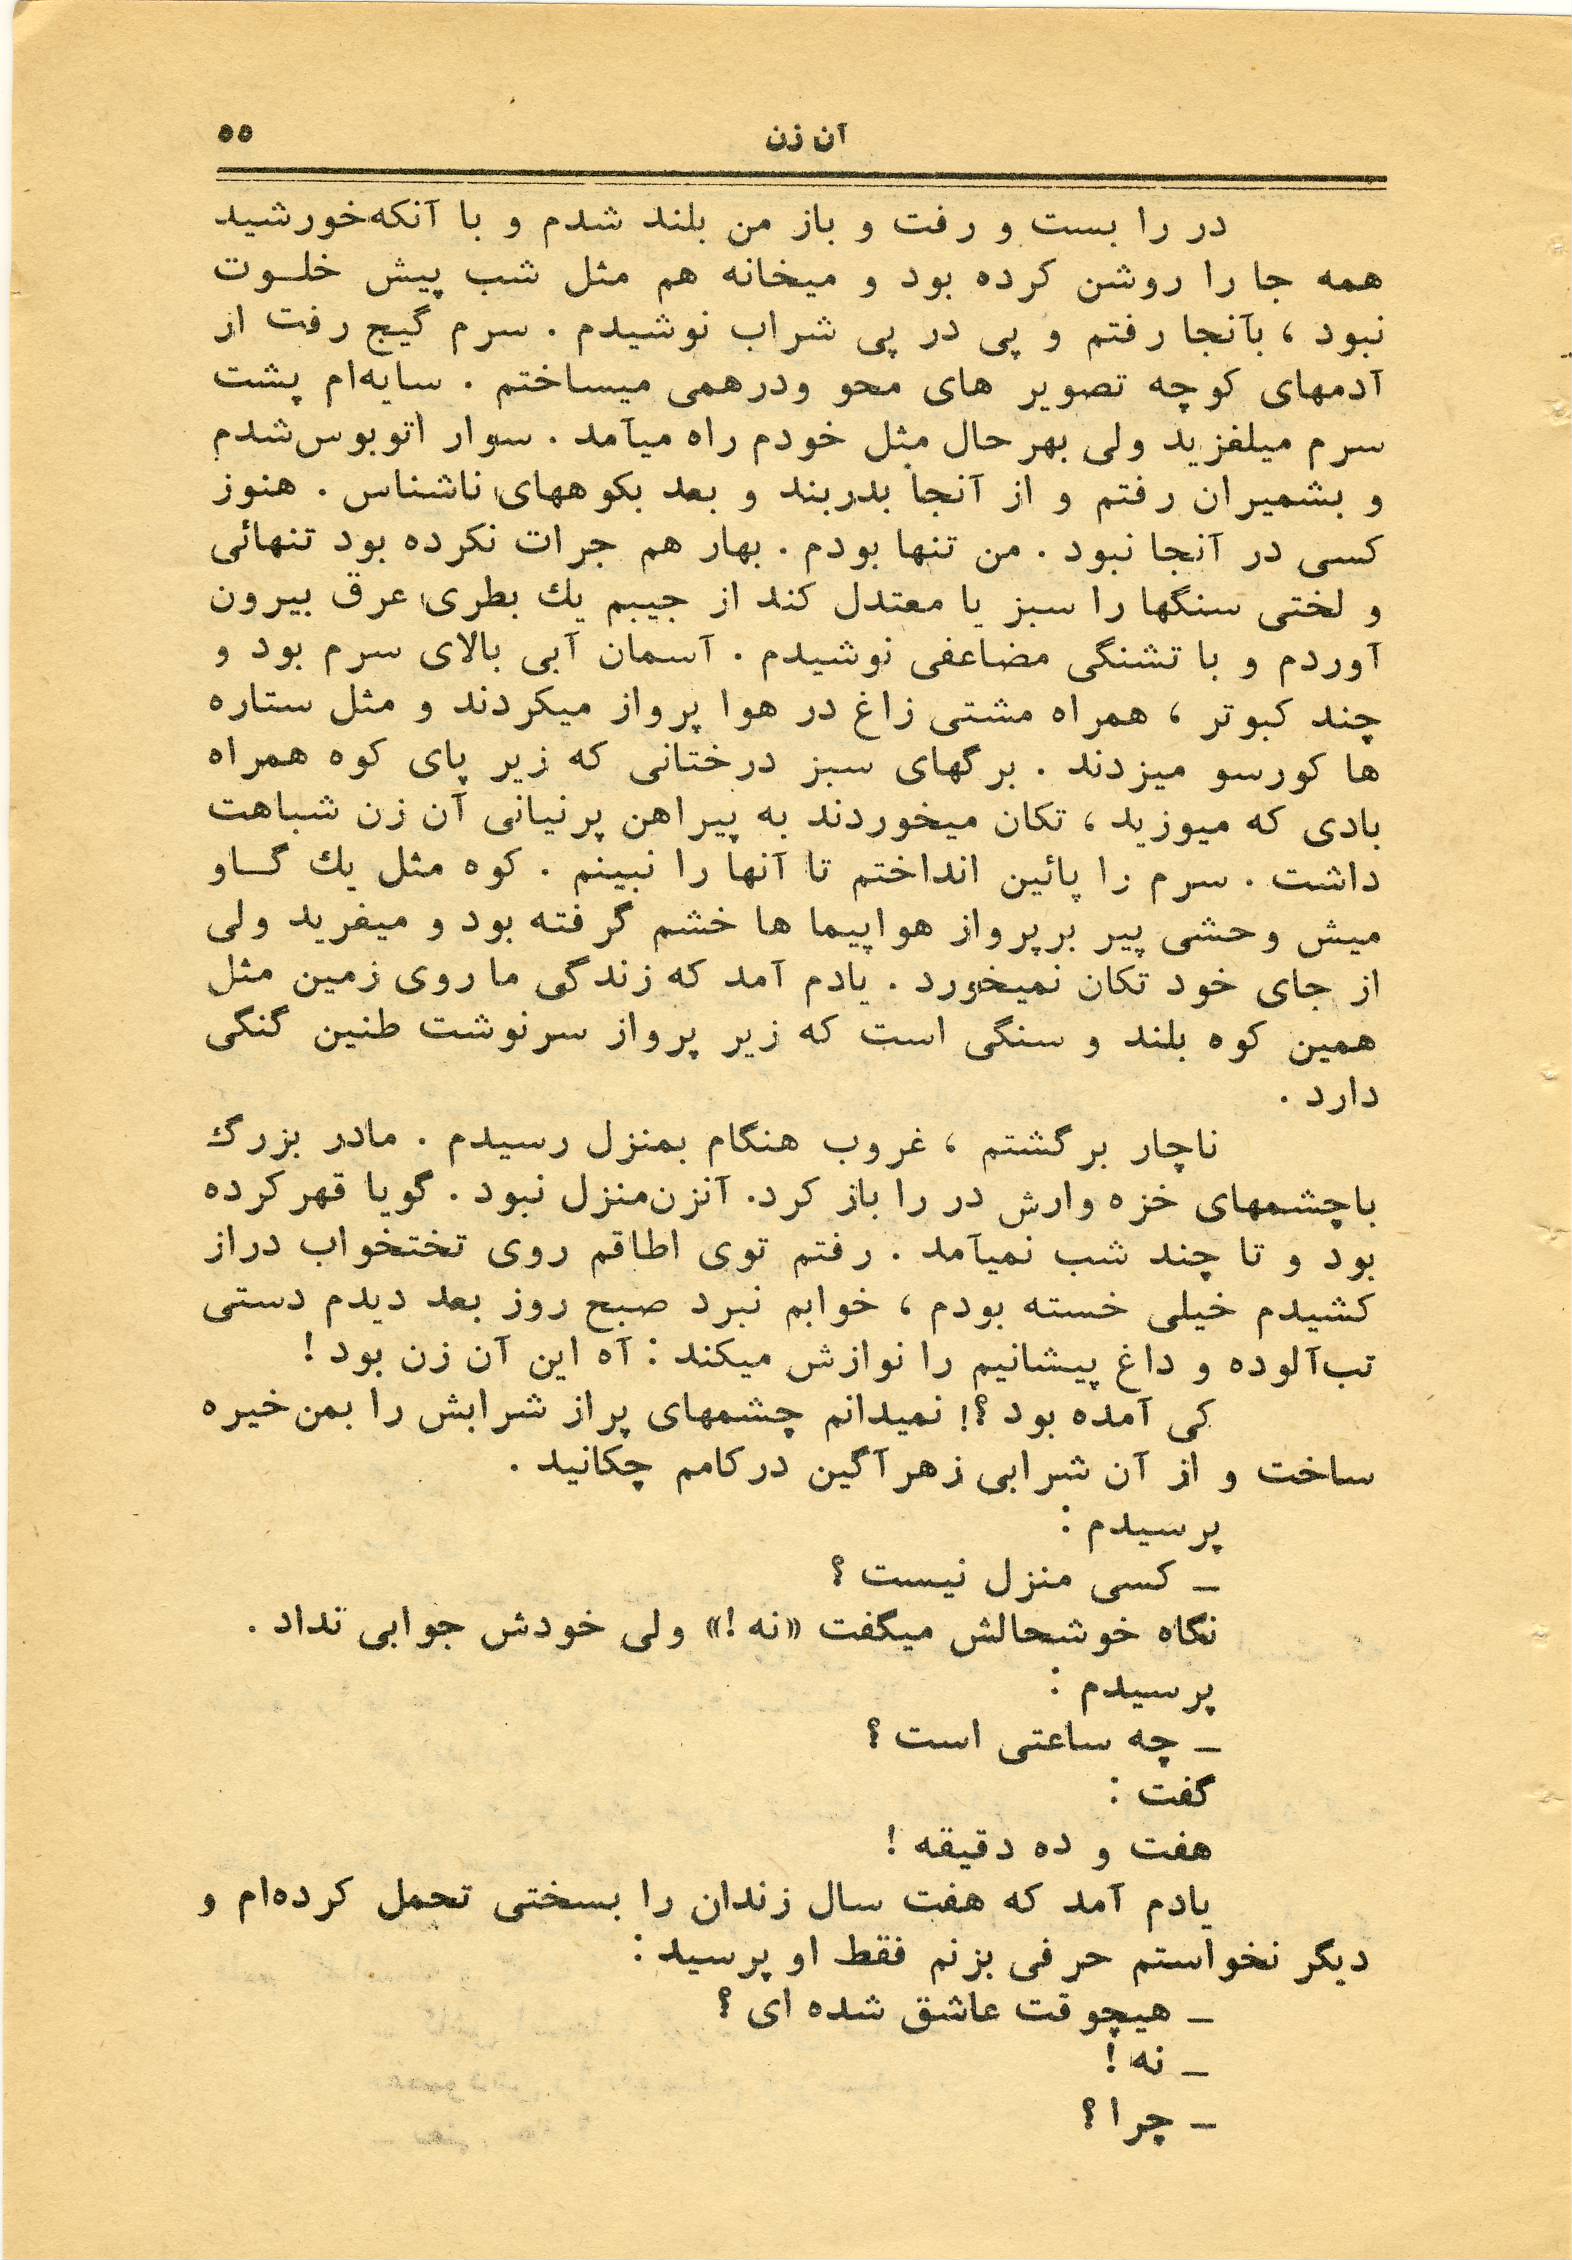 آن زن ۵۵
در را بست و رفت و باز من بلند شدم و با آنکه‌خورشید
همه جا را روشن کرده بود و میخانه هم مثل شب پیش خلـوت
نبود ، بآنجا رفتم و پی در پی شراب نوشیدم . سرم گیج رفت از
آدمهای کوچه تصویر های محو ودرهمی میساختم . سایه‌ام پشت
سرم میلغزید ولی بهرحال مثل خودم راه میآمد . سوار اتوبوس‌شدم
و بشمیران رفتم و از آنجا بدربند و بعد بکوههای ناشناس . هنوز
کسی در آنجا نبود . من تنها بودم . بهار هم جرات نکرده بود تنهائی
و لختی سنگها را سبز یا معتدل کند از جیبم یك بطری عرق بیرون
آوردم و با تشنگی مضاعفی نوشیدم . آسمان آبی بالای سرم بود و
چند کبوتر ، همراه مشتی زاغ در هوا پرواز میکردند و مثل ستاره
ها کورسو میزدند . برگهای سبز درختانی که زیر پای کوه همراه
بادی که میوزید ، تکان میخوردند به پیراهن پرنیانی آن زن شباهت
داشت . سرم را پائین انداختم تا آنها را نبینم . کوه مثل یك گـاو
میش وحشی پیر برپرواز هواپیما ها خشم گرفته بود و میغرید ولی
از جای خود تکان نمیخورد . یادم آمد که زندگی ما روی زمین مثل
همین کوه بلند و سنگی است که زیر پرواز سرنوشت طنین گنگی
دارد .
ناچار برگشتم ، غروب هنگام بمنزل رسیدم . مادر بزرگ
باچشمهای خزه وارش در را باز کرد. آنزن‌منزل نبود . گویا قهرکرده
بود و تا چند شب نمیآمد . رفتم توی اطاقم روی تختخواب دراز
کشیدم خیلی خسته بودم ، خوابم نبرد صبح روز بعد دیدم دستی
تب‌آلوده و داغ پیشانیم را نوازش میکند : آه این آن زن بود !
کی آمده بود ؟! نمیدانم چشمهای پراز شرابش را بمن‌خیره
ساخت و از آن شرابی زهرآگین درکامم چکانید .
پرسیدم :
ـ کسی منزل نیست ؟
نگاه خوشحالش میگفت «نه !» ولی خودش جوابی نداد .
پرسیدم :
ـ چه ساعتی است ؟
گفت :
هفت و ده دقیقه !
یادم آمد که هفت سال زندان را بسختی تحمل کرده‌ام و
دیگر نخواستم حرفی بزنم فقط او پرسید :
ـ هیچوقت عاشق شده ای ؟
ـ نه !
ـ چرا ؟